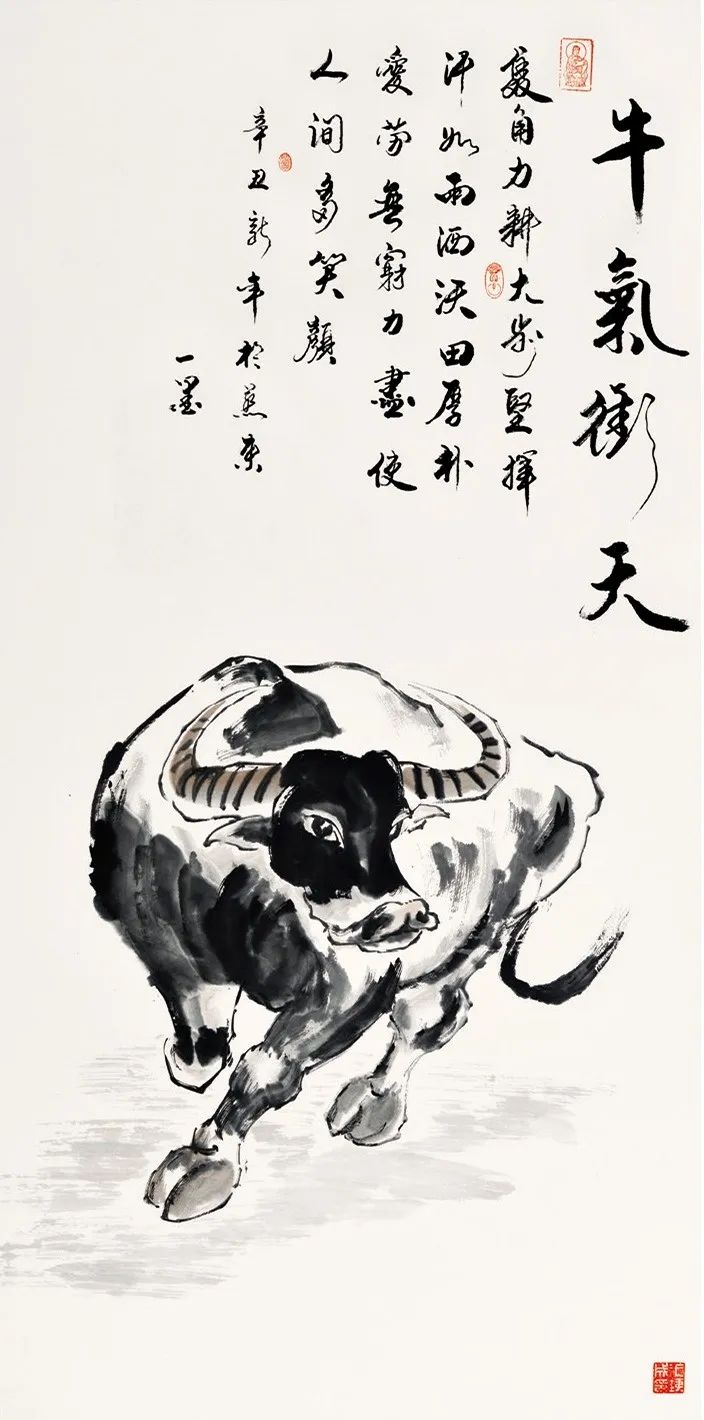 牛氣衝天
雙角力耕大步堅揮
汗如雨洒沃田厚朴
愛勞無窮力盡使
人間多笑顏
辛丑新年於燕京
一墨